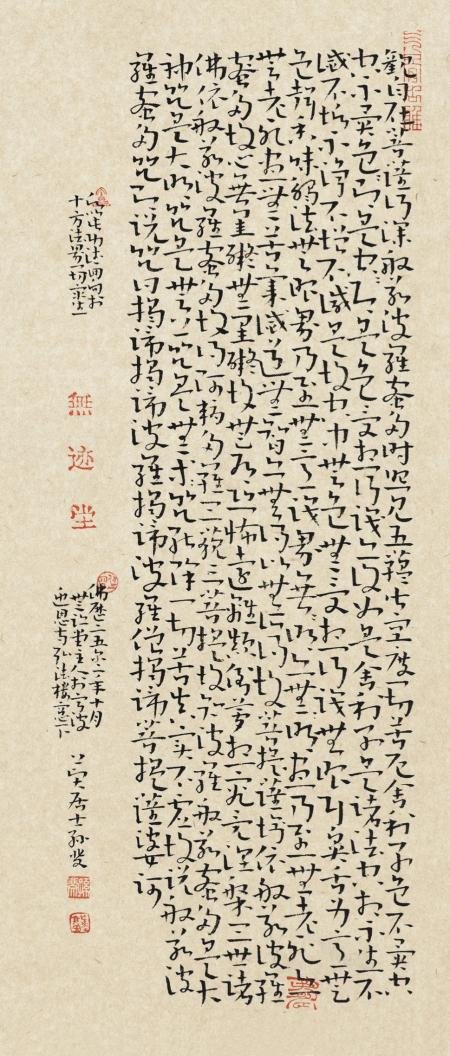 觀自在菩薩行深般若波羅蜜多時照見五蘊皆空度一切苦厄舍利子色不異空
空不異色色即是空空即是色受想行識亦復如是舍利子是諸法空相不生不
滅不垢不淨不增不減是故空中無色無受想行識無眼耳鼻舌身意無
色聲香味觸法無眼界乃至無意識界無無明亦無無明盡乃至無老死亦
無老死盡無苦集滅道無智亦無得以無所得故菩提薩埵依般若波羅
蜜多故心無罣礙無罣礙故無有恐怖遠離顛倒夢想究竟涅槃三世諸
佛依般若波羅蜜多故得阿耨多羅三藐三菩提故知般若波羅蜜多是大
神咒是大明咒是無上咒是無等等咒能除一切苦真實不虛故說般若波
羅蜜多咒即說咒曰揭諦揭諦波羅揭諦波羅僧揭諦菩提薩婆訶
十方法界一切衆生
無迹坐
年十月
主人於寧波
居士孫